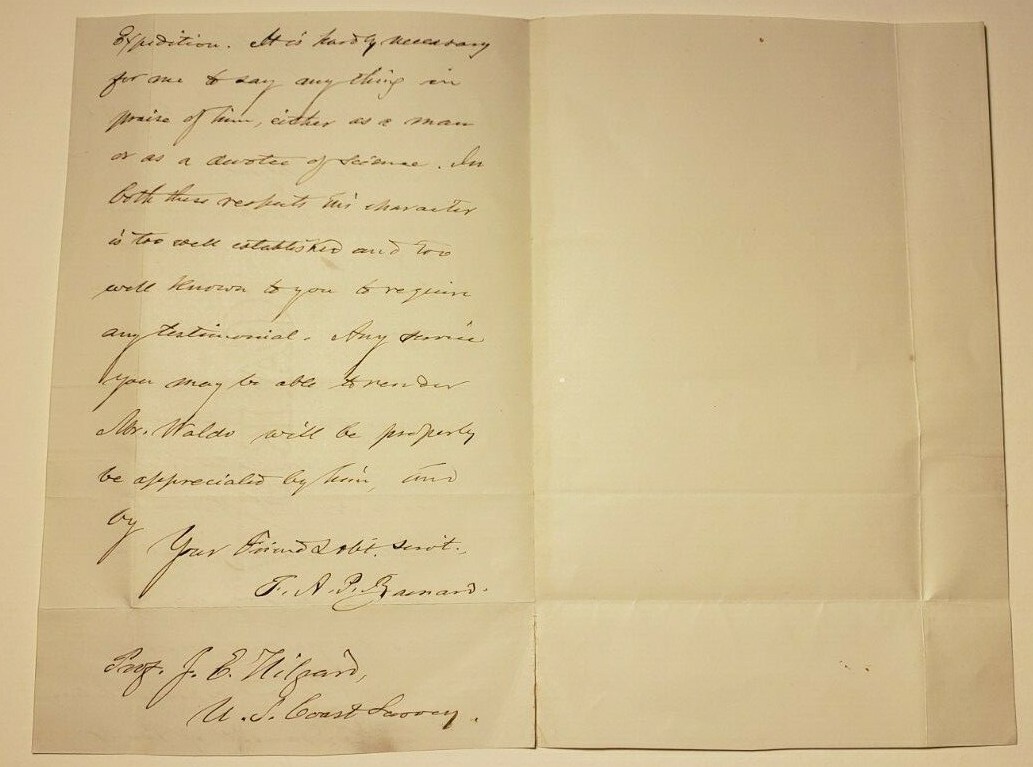 Expedition. It is hardly necessary
for me to say any thing in
praise of him, either as a man
or as a devotee of science. In
both these respects his character
is too well established and too
well known to you to require
any testimonial. Any service
you may be able to render
Mr. Waldo will be properly
be appreciated by him, and
by
Your Friend & obt. servt.
F. A. P. Barnard.
Prof. J. E. Hilgard,
U. S. Coast Survey.